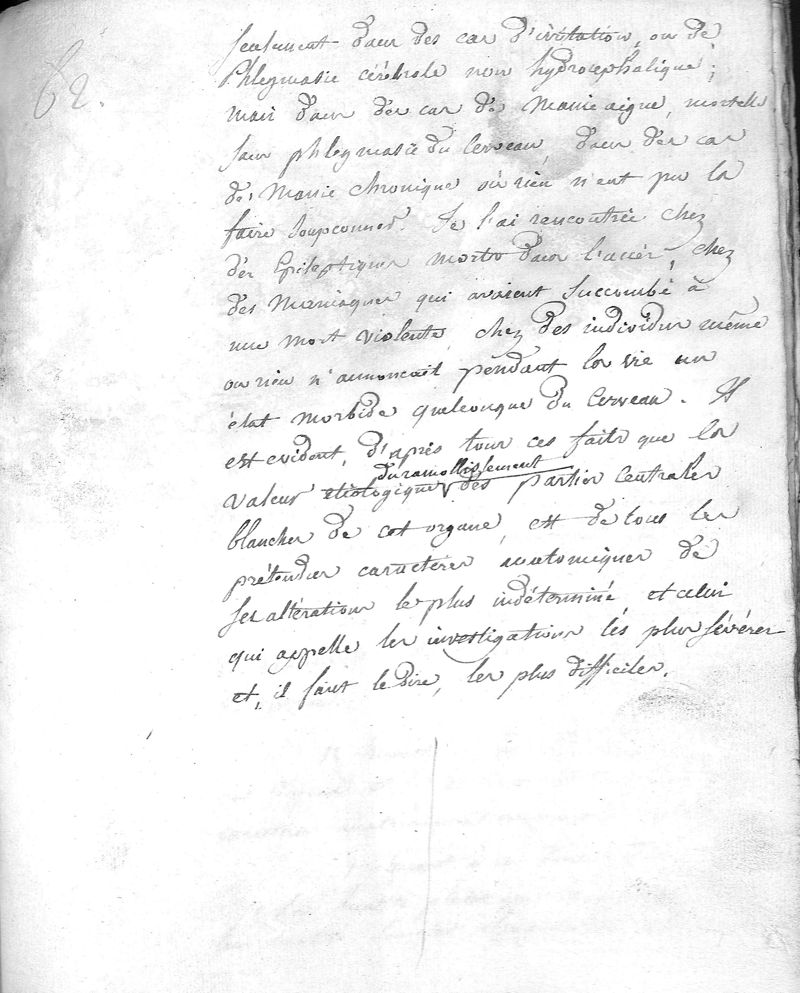 62.
seulement dans des cas d'irritation, ou de
Phlegmasie cérébrale non hydrocephalique ;
mais dans des cas de Manie aigue, mortelle
sans phlegmasie du Cerveau, dans des cas
de Manie chronique où rien n'eut pu la
faire soupconner. Je l'ai rencontrée chez
des Epileptiques morts dans l'accès, chez
des Maniaques qui avaient succombé à
une mort violente, chez des individus même
ou rien n'annoncait pendant la vie un
état morbide quelconque du Cerveau. Il
est evident, d'après tous ces faits que la
du ramollissement
valeur etiologique des parties Centrales
blanches de cet organe, est de tous les
prétendus caractères anatomiques de
ses altérations le plus indéterminé et celui
qui appelle les investigations les plus sévères
et, il faut le dire, les plus difficiles.